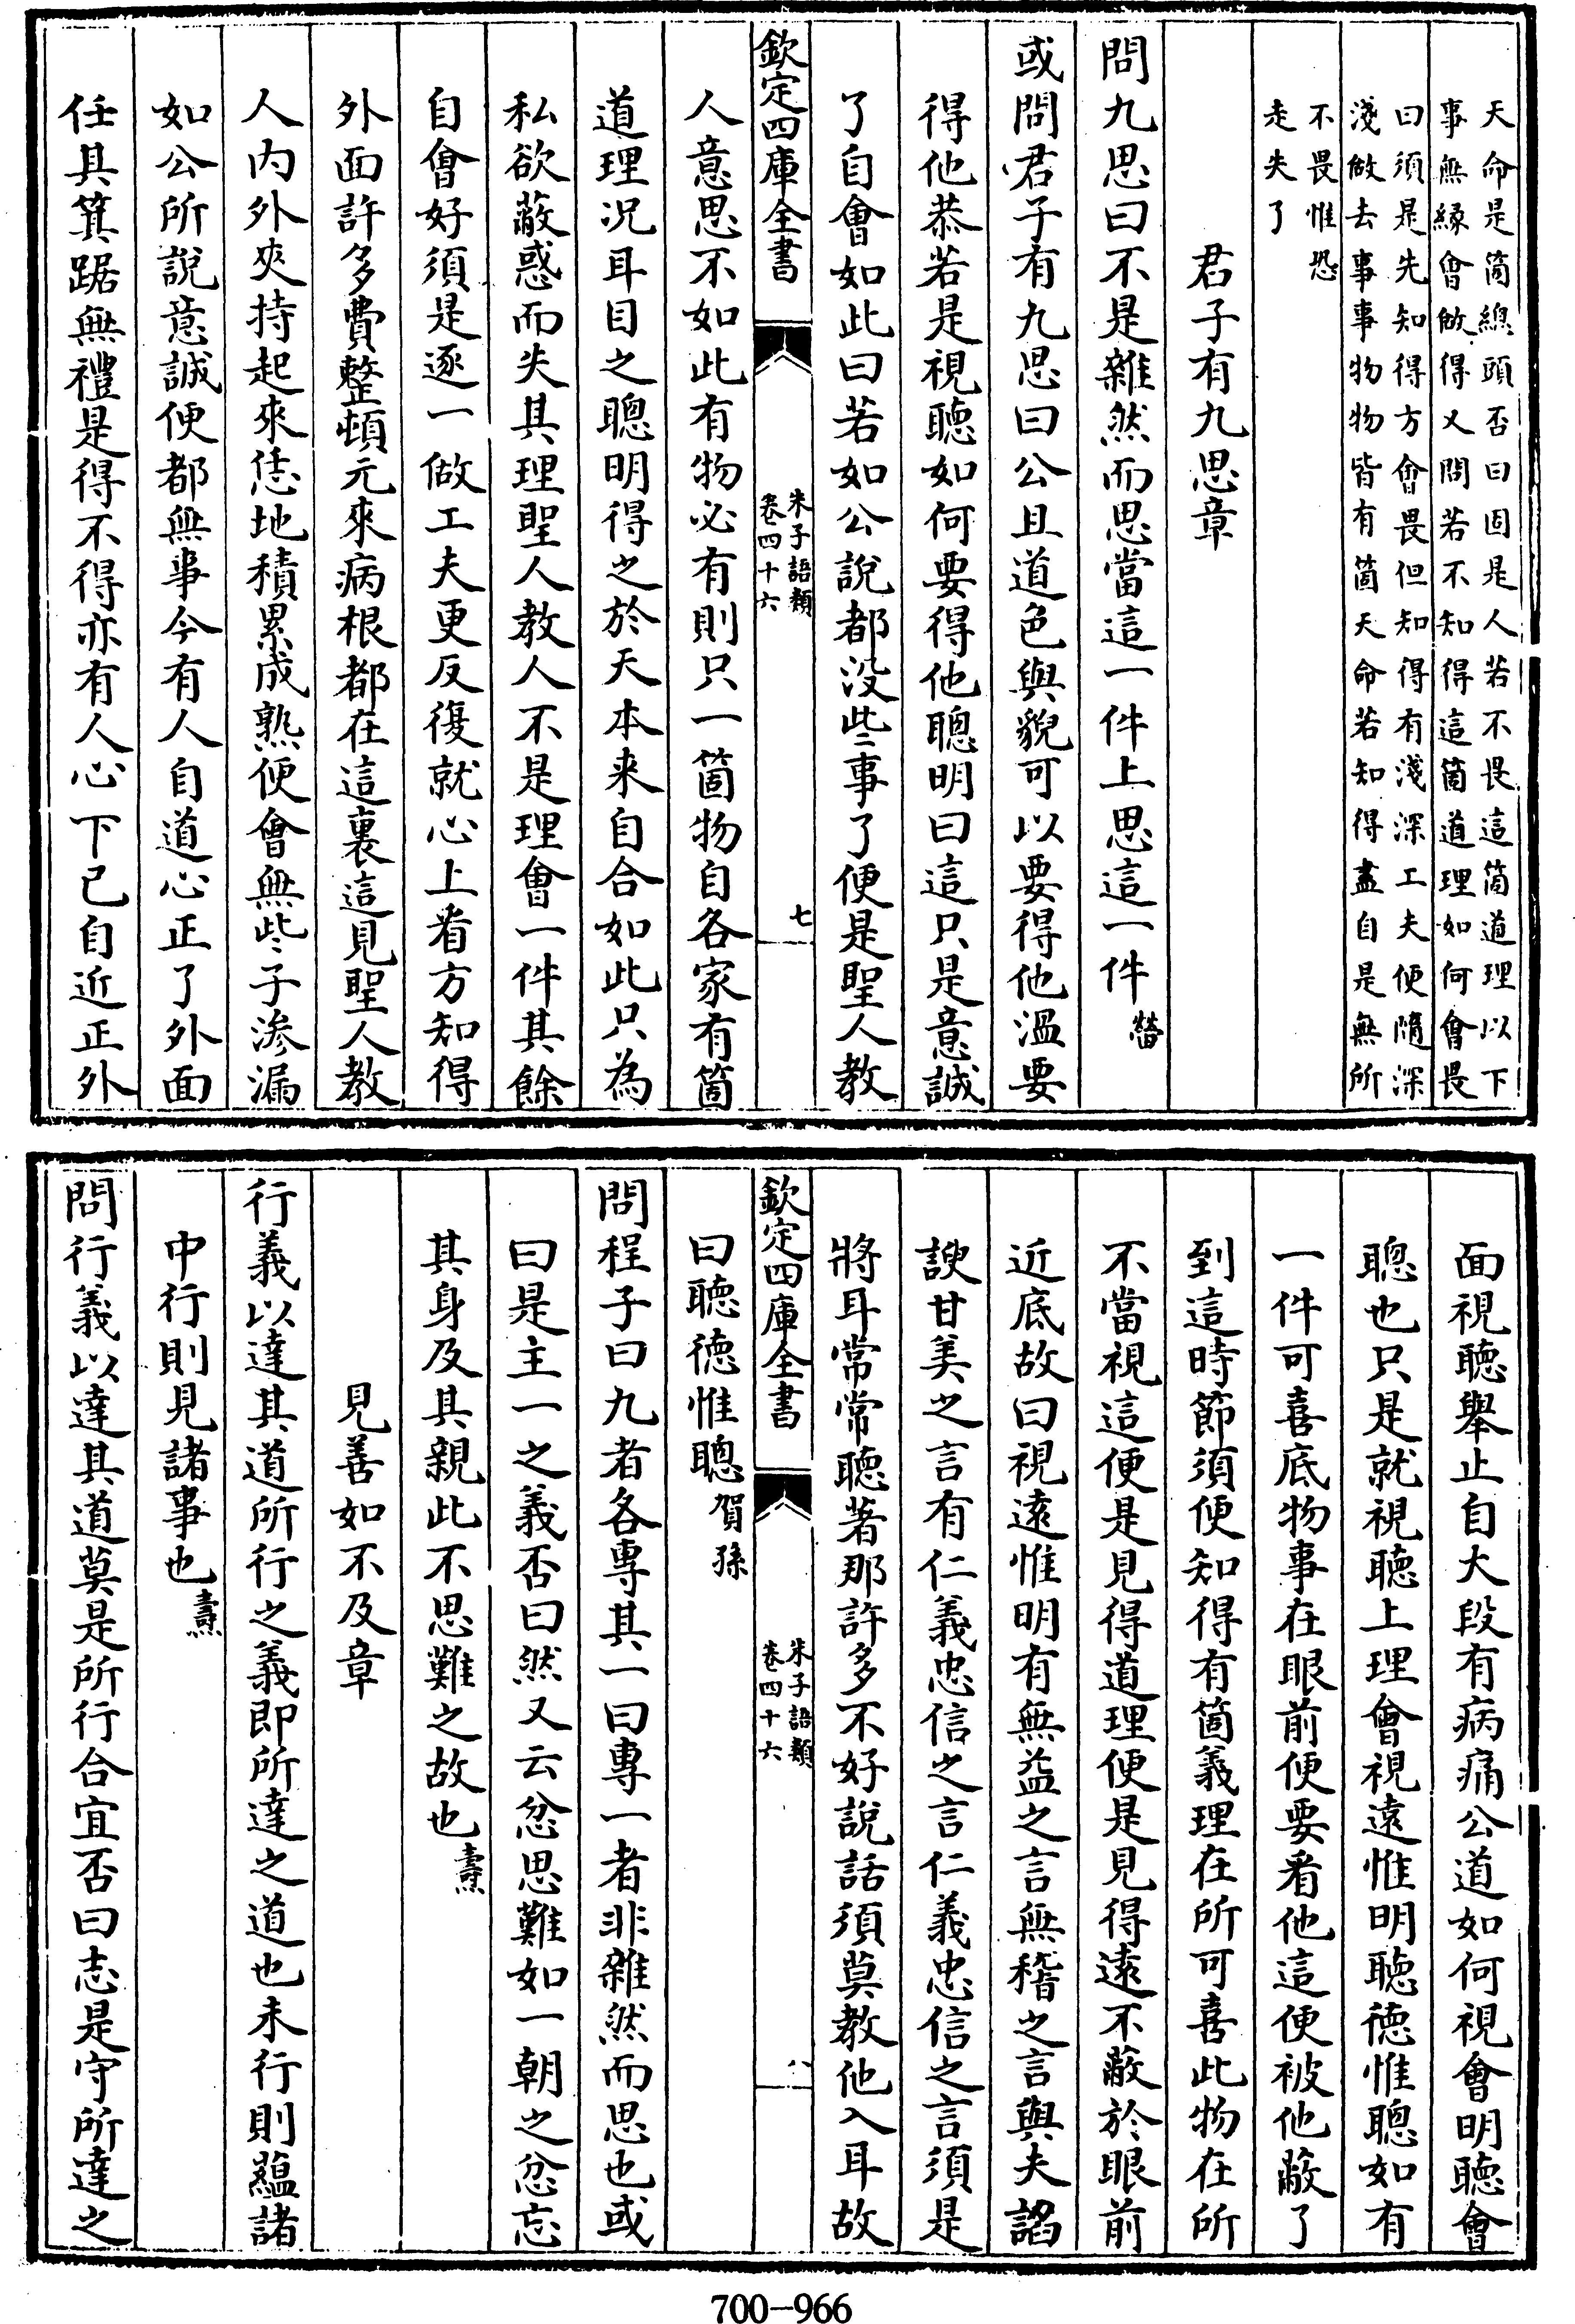 天命是箇總頭否曰固是人若不畏這箇道理以下
事無緣會做得又問若不知得這箇道理如何會畏
曰須是先知得方會畏但知得有淺深工夫便隨深
淺做去事事物物皆有箇天命若知得盡自是無所
不畏惟恐
走失了
君子有九思章
問九思曰不是雜然而思當這一件上思這一件㽦
或問君子有九思曰公且道色與貌可以要得他溫要
得他恭若是視聽如何要得他聰明曰這只是意誠
了自會如此曰若如公說都没些事了便是聖人教
欽定四庫全書
朱子語類
卷四十六
七
人意思不如此有物必有則只一箇物自各家有箇
道理況耳目之聰明得之於天本来自合如此只為
私欲蔽惑而失其理聖人教人不是理會一件其餘
自會好須是逐一做工夫更反復就心上看方知得
外面許多費整頓元來病根都在這裏這見聖人教
人内外夾持起來恁地積累成熟便會無些子滲漏
如公所說意誠便都無事今有人自道心正了外面
任其箕踞無禮是得不得亦有人心下已自近正外
面視聽舉止自大段有病痛公道如何視會明聽會
聰也只是就視聽上理會視遠惟明聽德惟聰如有
一件可喜底物事在眼前便要看他這便被他蔽了
到這時節須便知得有箇義理在所可喜此物在所
不當視這便是見得道理便是見得遠不蔽於眼前
近底故曰視遠惟明有無益之言無稽之言與夫諂
諛甘美之言有仁義忠信之言仁義忠信之言須是
將耳常常聽著那許多不好說話須莫教他入耳故
欽定四庫全書
朱子語類
卷四十六
八
曰聽德惟聰賀孫
問程子曰九者各專其一曰專一者非雜然而思也或
曰是主一之義否曰然又云忿思難如一朝之忿忘
其身及其親此不思難之故也燾
見善如不及章
行義以達其道所行之義即所達之道也未行則蘊諸
中行則見諸事也燾
問行義以達其道莫是所行合宜否曰志是守所達之
700-966